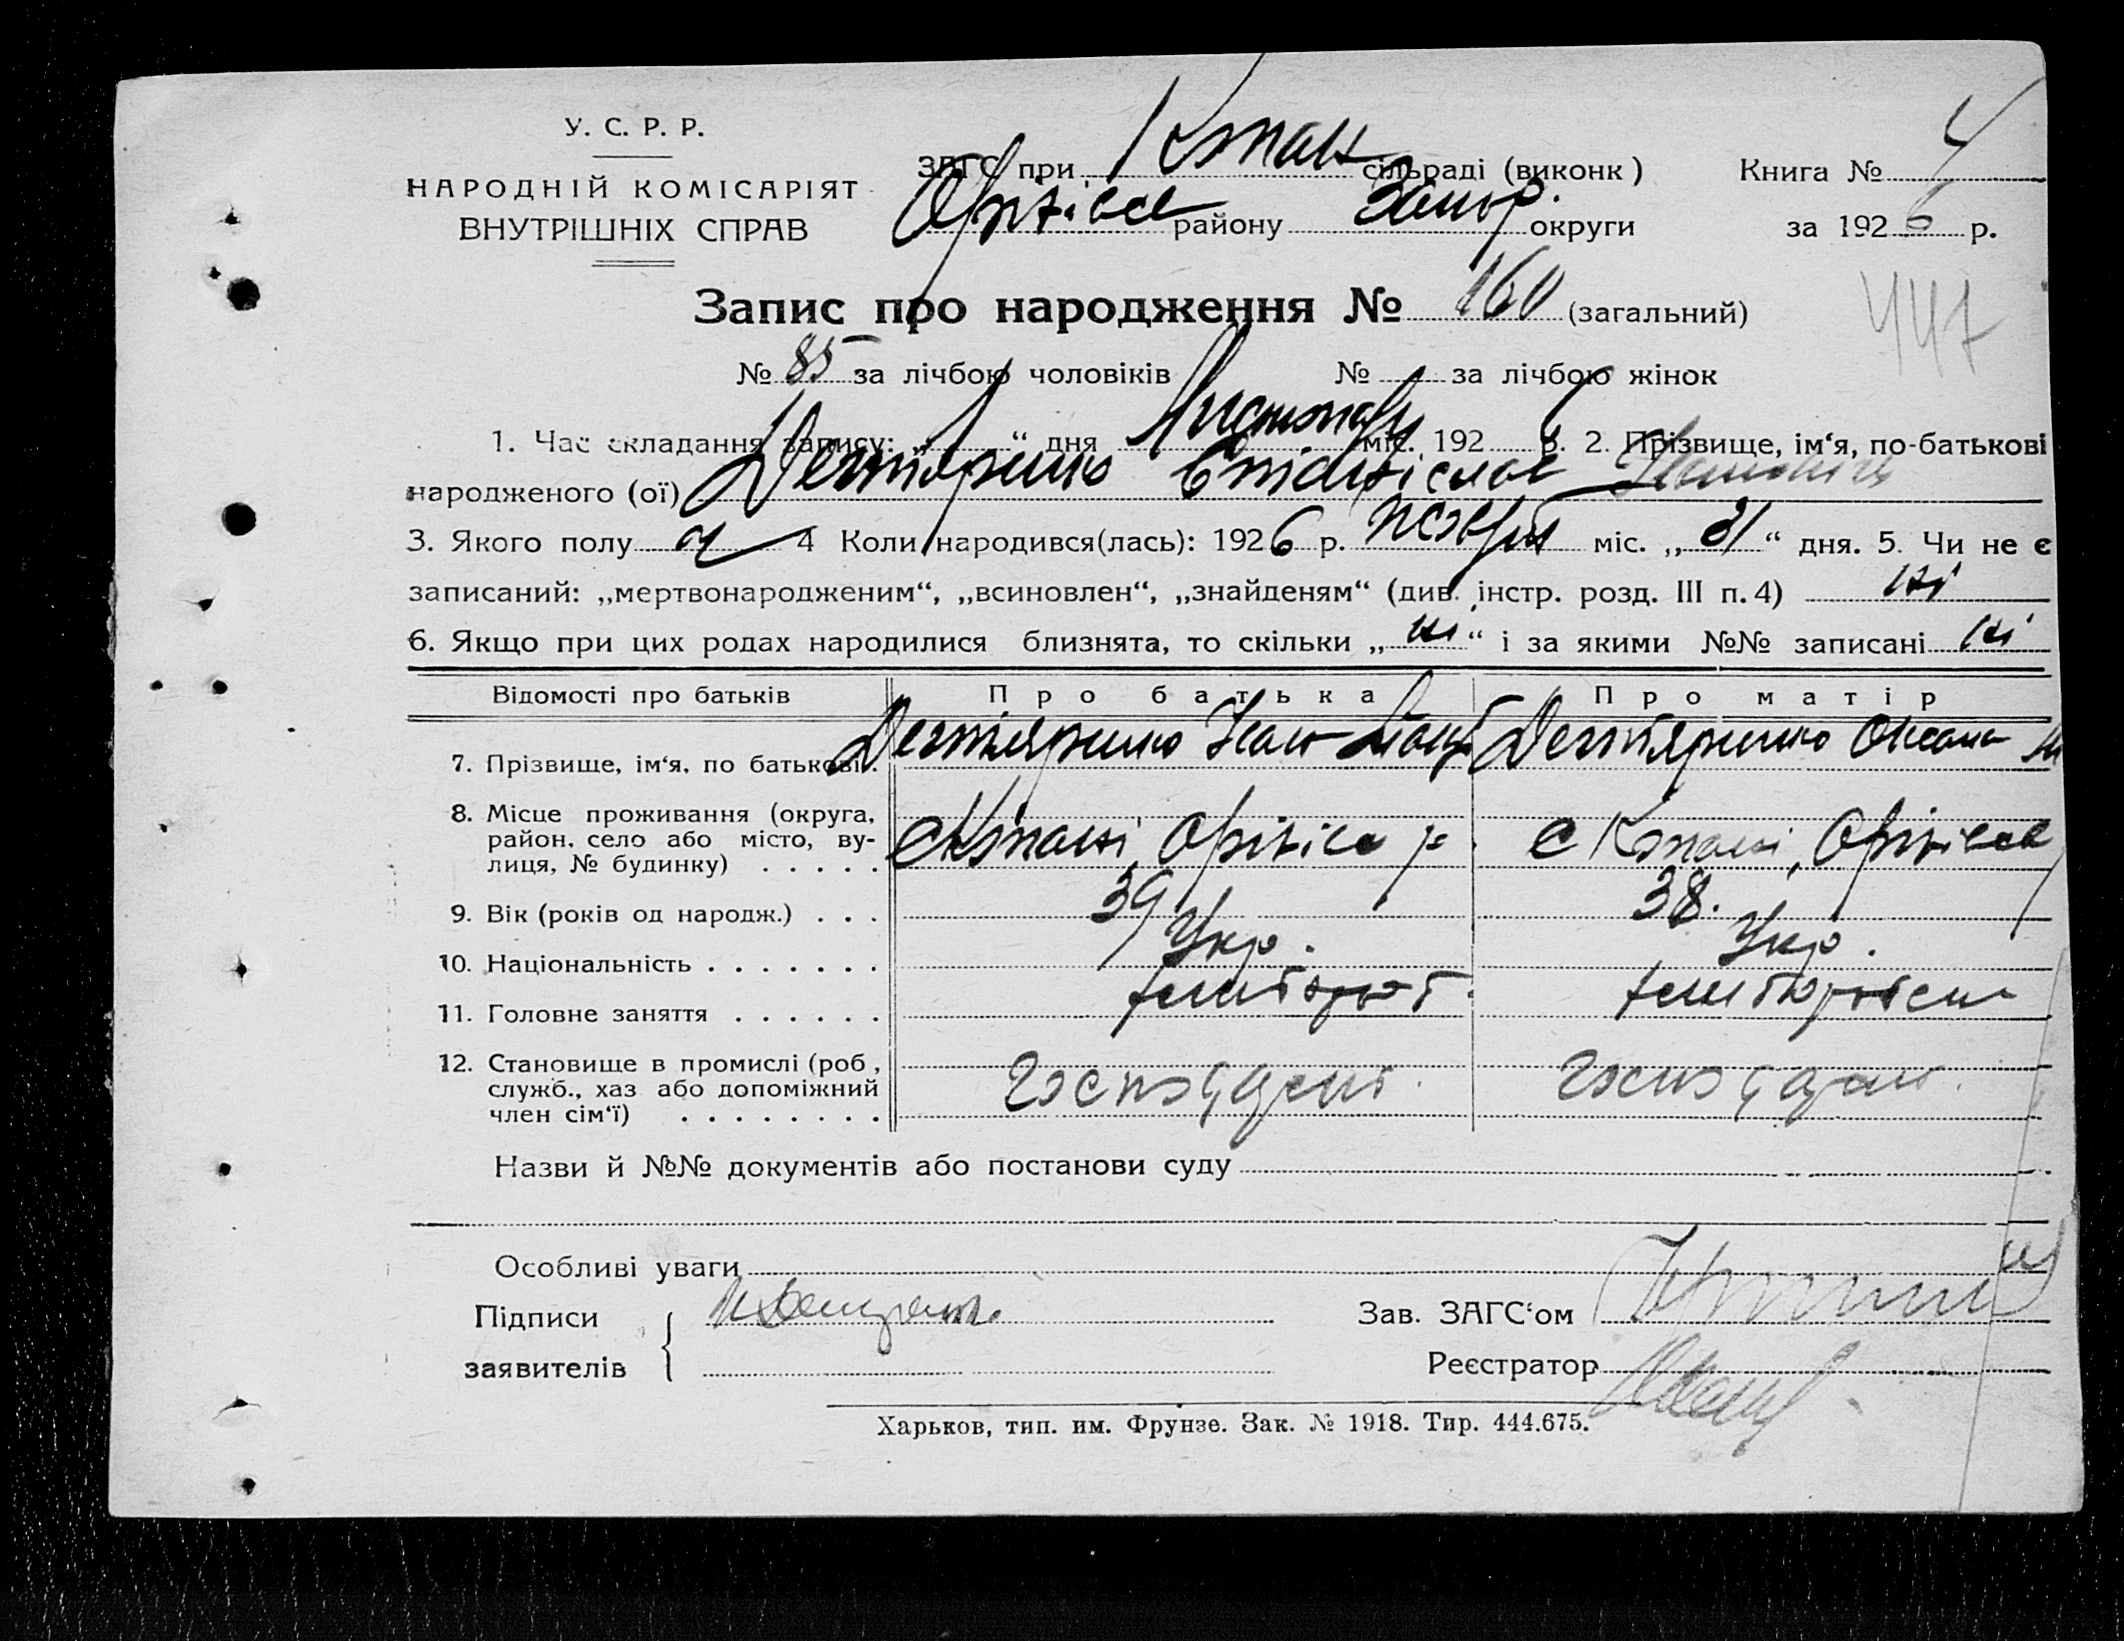 У. С. Р. Р.
НАРОДНІЙ КОМІСАРІЯТ
ВНУТРІШНІХ СПРАВ
ЗАГС при Копан сільраді (виконк)
Оріхівсь району Запор. округи
Книга № 4
за 1926 р.
Запис про народження № 160 (загальний)
447
№ 85 за лічбою чоловіків № за лічбою жінок
1. Час складання запису: „ “ дня Листопаду міс. 1926 р. 2. Прізвище, ім‘я, по-батькові
народженого (ої) Дегтяренко Іванович
3. Якого полу ч 4 Коли народився(лась): 1926 р. жовтн міс. „31“ дня. 5. Чи не є
записаний: „мертвонародженим“, „всиновлен“, „знайденям“ (див. інстр. розд. III п. 4) ні
6. Якщо при цих родах народилися близнята, то скільки „ні“ і за якими №№ записані ні
Відомості про батьків Про батька Про матір
7. Прізвище, ім‘я, по батькові . Дегтяренко Іван Дегтяренко Оксана
8. Місце проживання (округа, район, село або місто, вулиця, № будинку) . . . . . с Копані, Оріхівсь р. с Копані, Оріхівсь
9. Вік (років од народж.) . . . 39 38.
10. Національність . . . . . . . Укр. Укр.
11. Головне заняття . . . . . . хлібороб. хліборобсш
12. Становище в промислі (роб., служб., хаз або допоміжний член сім‘ї) . . . . . . . . господар. господар.
Назви й №№ документів або постанови суду
Особливі уваги
Підписи
заявителів
Зав. ЗАГС‘ом
Реєстратор
Харьков, тип. им. Фрунзе. Зак. № 1918. Тир. 444.675.